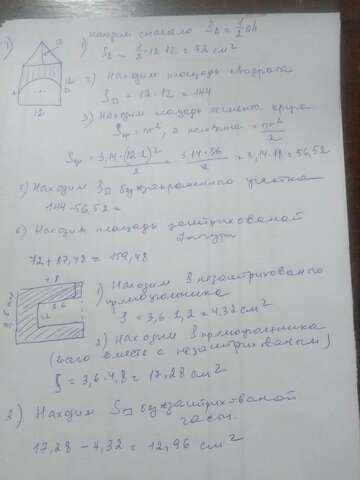 1) 1) Находим сначала S△ = 1/2 ah
S△ = 1/2 · 12 · 12 = 72 см²
2) Находим площадь квадрата
S□ = 12 · 12 = 144
3) Находим площадь сегмента круга
Sкр = πr², а половина = πr²/2
Sкр = 3,14 · (12:2)²/2 = 3,14 · 36/2 = 3,14 · 18 = 56,52
5) Находим S□ без закрашенного участка
144 - 56,52 =
6) Находим площадь заштрихованой
фигуры
72 + 87,48 = 159,48
12
12
4,8
3,6
3,6
1,2
1) Находим S незаштрихованого
прямоугольника
S = 3,6 · 1,2 = 4,32 см²
2) Находим S прямоугольника
(всего вместе с незаштрихованым)
S = 3,6 · 4,8 = 17,28 см²
3) Находим S□ без заштрихованой
части.
17,28 - 4,32 = 12,96 см²